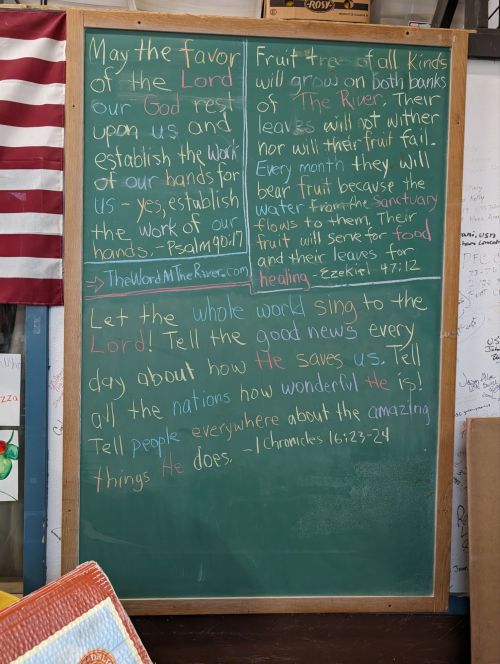 May the favor
of the Lord
our God rest
upon us and
establish the work
of our hands for
us - yes, establish
the work of our
hands. - Psalm 90:17
→ TheWordNTheRiver.com
Fruit tree of all Kinds
will grow on both banks
of The River. Their
leaves will not wither
nor will their fruit fail.
Every month they will
bear fruit because the
water from the Sanctuary
flows to them. Their
fruit will serve for food
and their leaves for
healing - Ezekiel 47:12
Let the whole world sing to the
Lord! Tell the good news every
day about how He saves us. Tell
all the nations how wonderful He is!
Tell people everywhere about the amazing
things He does. - 1 Chronicles 16:23-24
ROSY